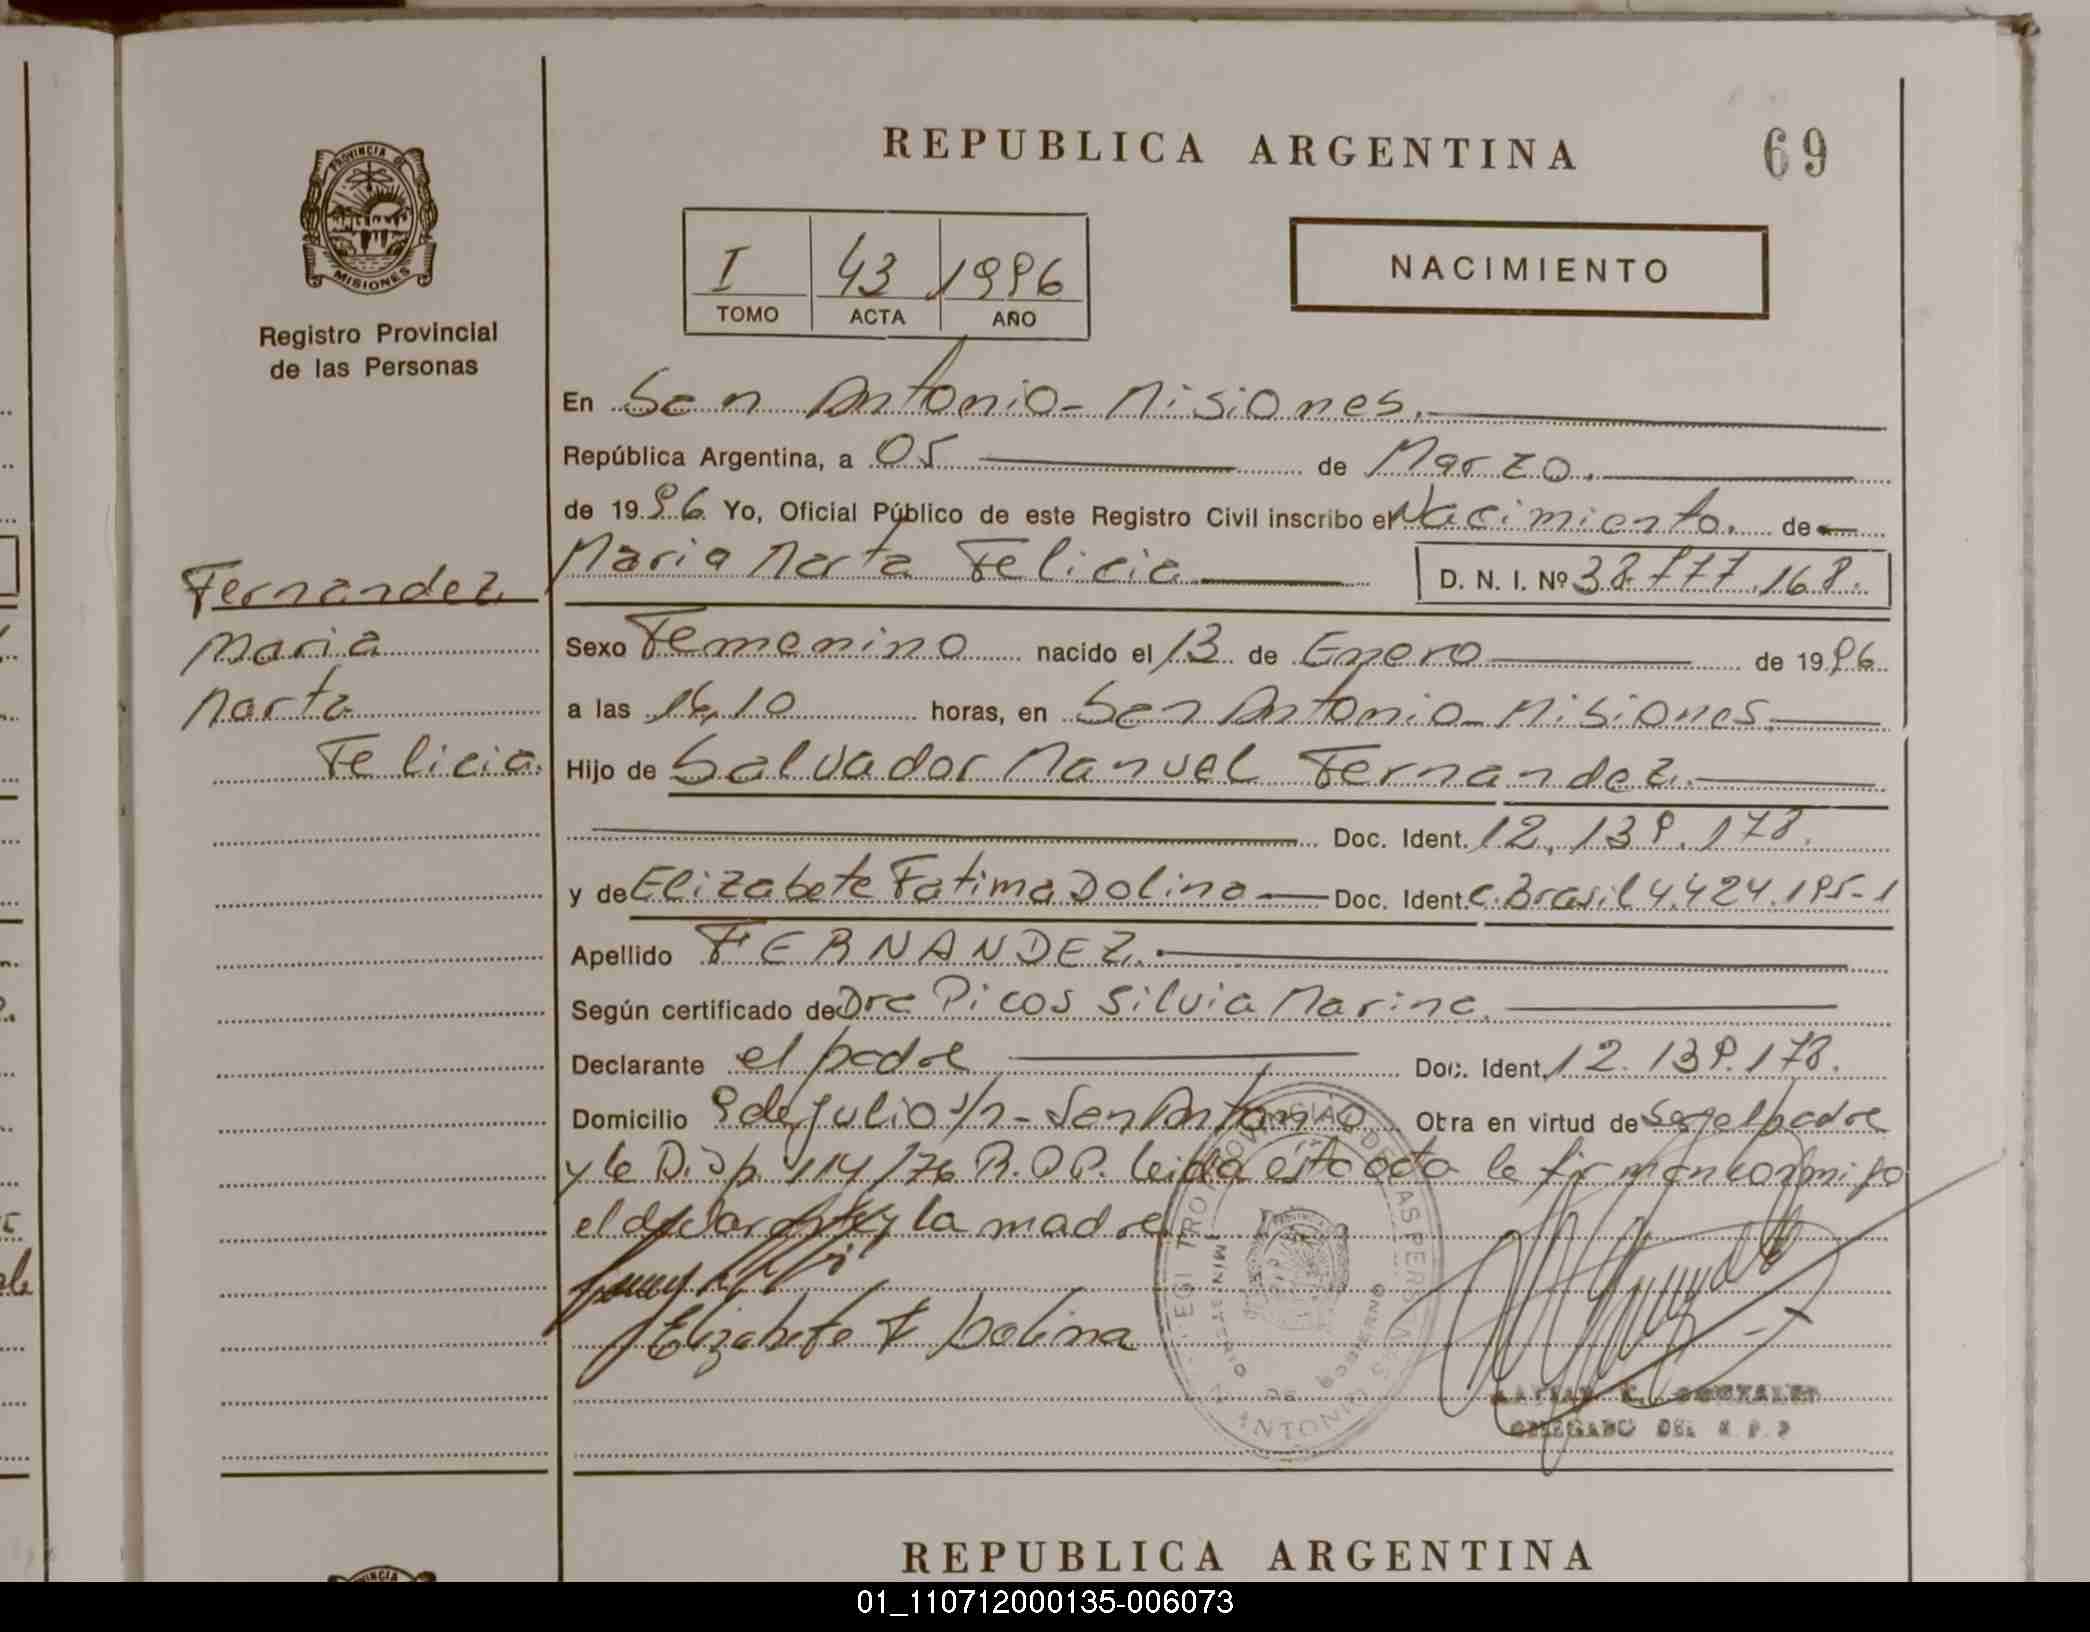 REPUBLICA ARGENTINA
69
PROVINCIA DE MISIONES
Registro Provincial
de las Personas
I 43 1996
TOMO ACTA AÑO
NACIMIENTO
En San Antonio - Misiones.
República Argentina, a 05 de Marzo.
de 1996 Yo, Oficial Público de este Registro Civil inscribo el Nacimiento. de
Maria Marta Felicia D. N. I. Nº 38.777.168.
Fernandez
Maria
Marta
Felicia.
Sexo Femenino nacido el 13 de Enero de 1996
a las 16,10 horas, en San Antonio - Misiones.
Hijo de Salvador Manuel Fernandez.
Doc. Ident. 12.139.178.
y de Elizabete Fatima Dolina Doc. Ident. C. Brasil 4.424.195-1
Apellido FERNANDEZ.
Según certificado de Dra Picos Silvia Marina.
Declarante el padre Doc. Ident. 12.139.178.
Domicilio 9 de Julio s/n - San Antonio Otra en virtud de ser el padre
y la Disp. 114/76 R.P.P. leida esta acta la firman conmigo
el declarante y la madre
Elizabete F Dolina
MINISTERIO DE GOBIERNO
GONZALEZ
DELEGADO DEL R.P.P
REPUBLICA ARGENTINA
01_110712000135-006073